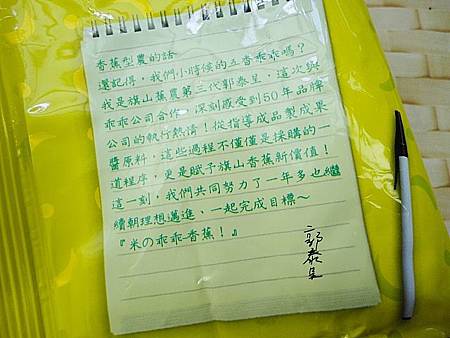 香蕉型農的話
還記得，我們小時候的五香乖乖嗎？
我是旗山蕉農第三代郭泰呈，這次與
乖乖公司合作，深刻感受到50年品牌
公司的執行熱情！從指導成品製成果
醬原料，這些過程不僅僅是採購的一
道程序，更是賦予旗山香蕉新價值！
這一刻，我們共同努力了一年多也繼
續朝理想邁進，一起完成目標～
『米の乖乖香蕉！』
郭泰呈